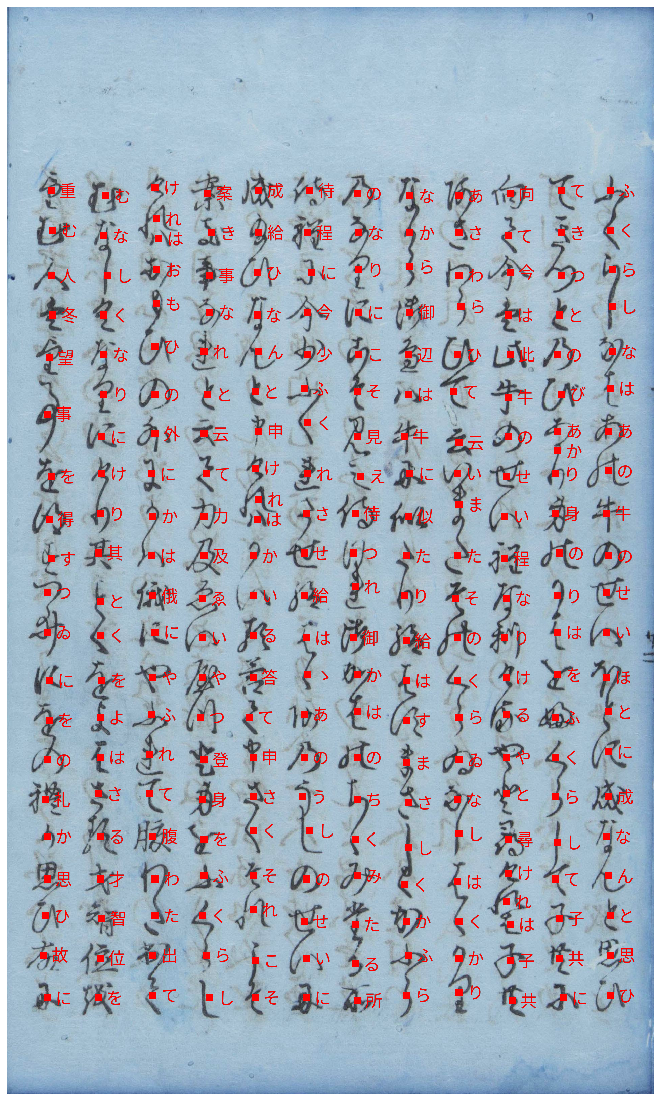 ふくらしなはあの牛のせいほとに成なんと思ひ
てきつとのびあかり身のりはをふくらして子共に
向て今は此牛のせい程なりけるやと尋けれは子共
あさわらひて云いまたそのくらゐなしはくかり
なから御辺は牛に似たり給はすまさしくかふら
のなりにこそ見え侍つれ御かはのちくみたる所
侍程に今少ふくれさせ給はゝあのうしのせいに
成給ひなんと申けれはかいる答て申さくそれこそ
案き事なれと云て力及ゑいやつ登身をふくらし
けれはおもひの外にかは俄にやふれて腹わた出て
むなしくなりにけり其とくをよはさる才智位を
重む人冬望事を得すつゐにをの礼か思ひ故に